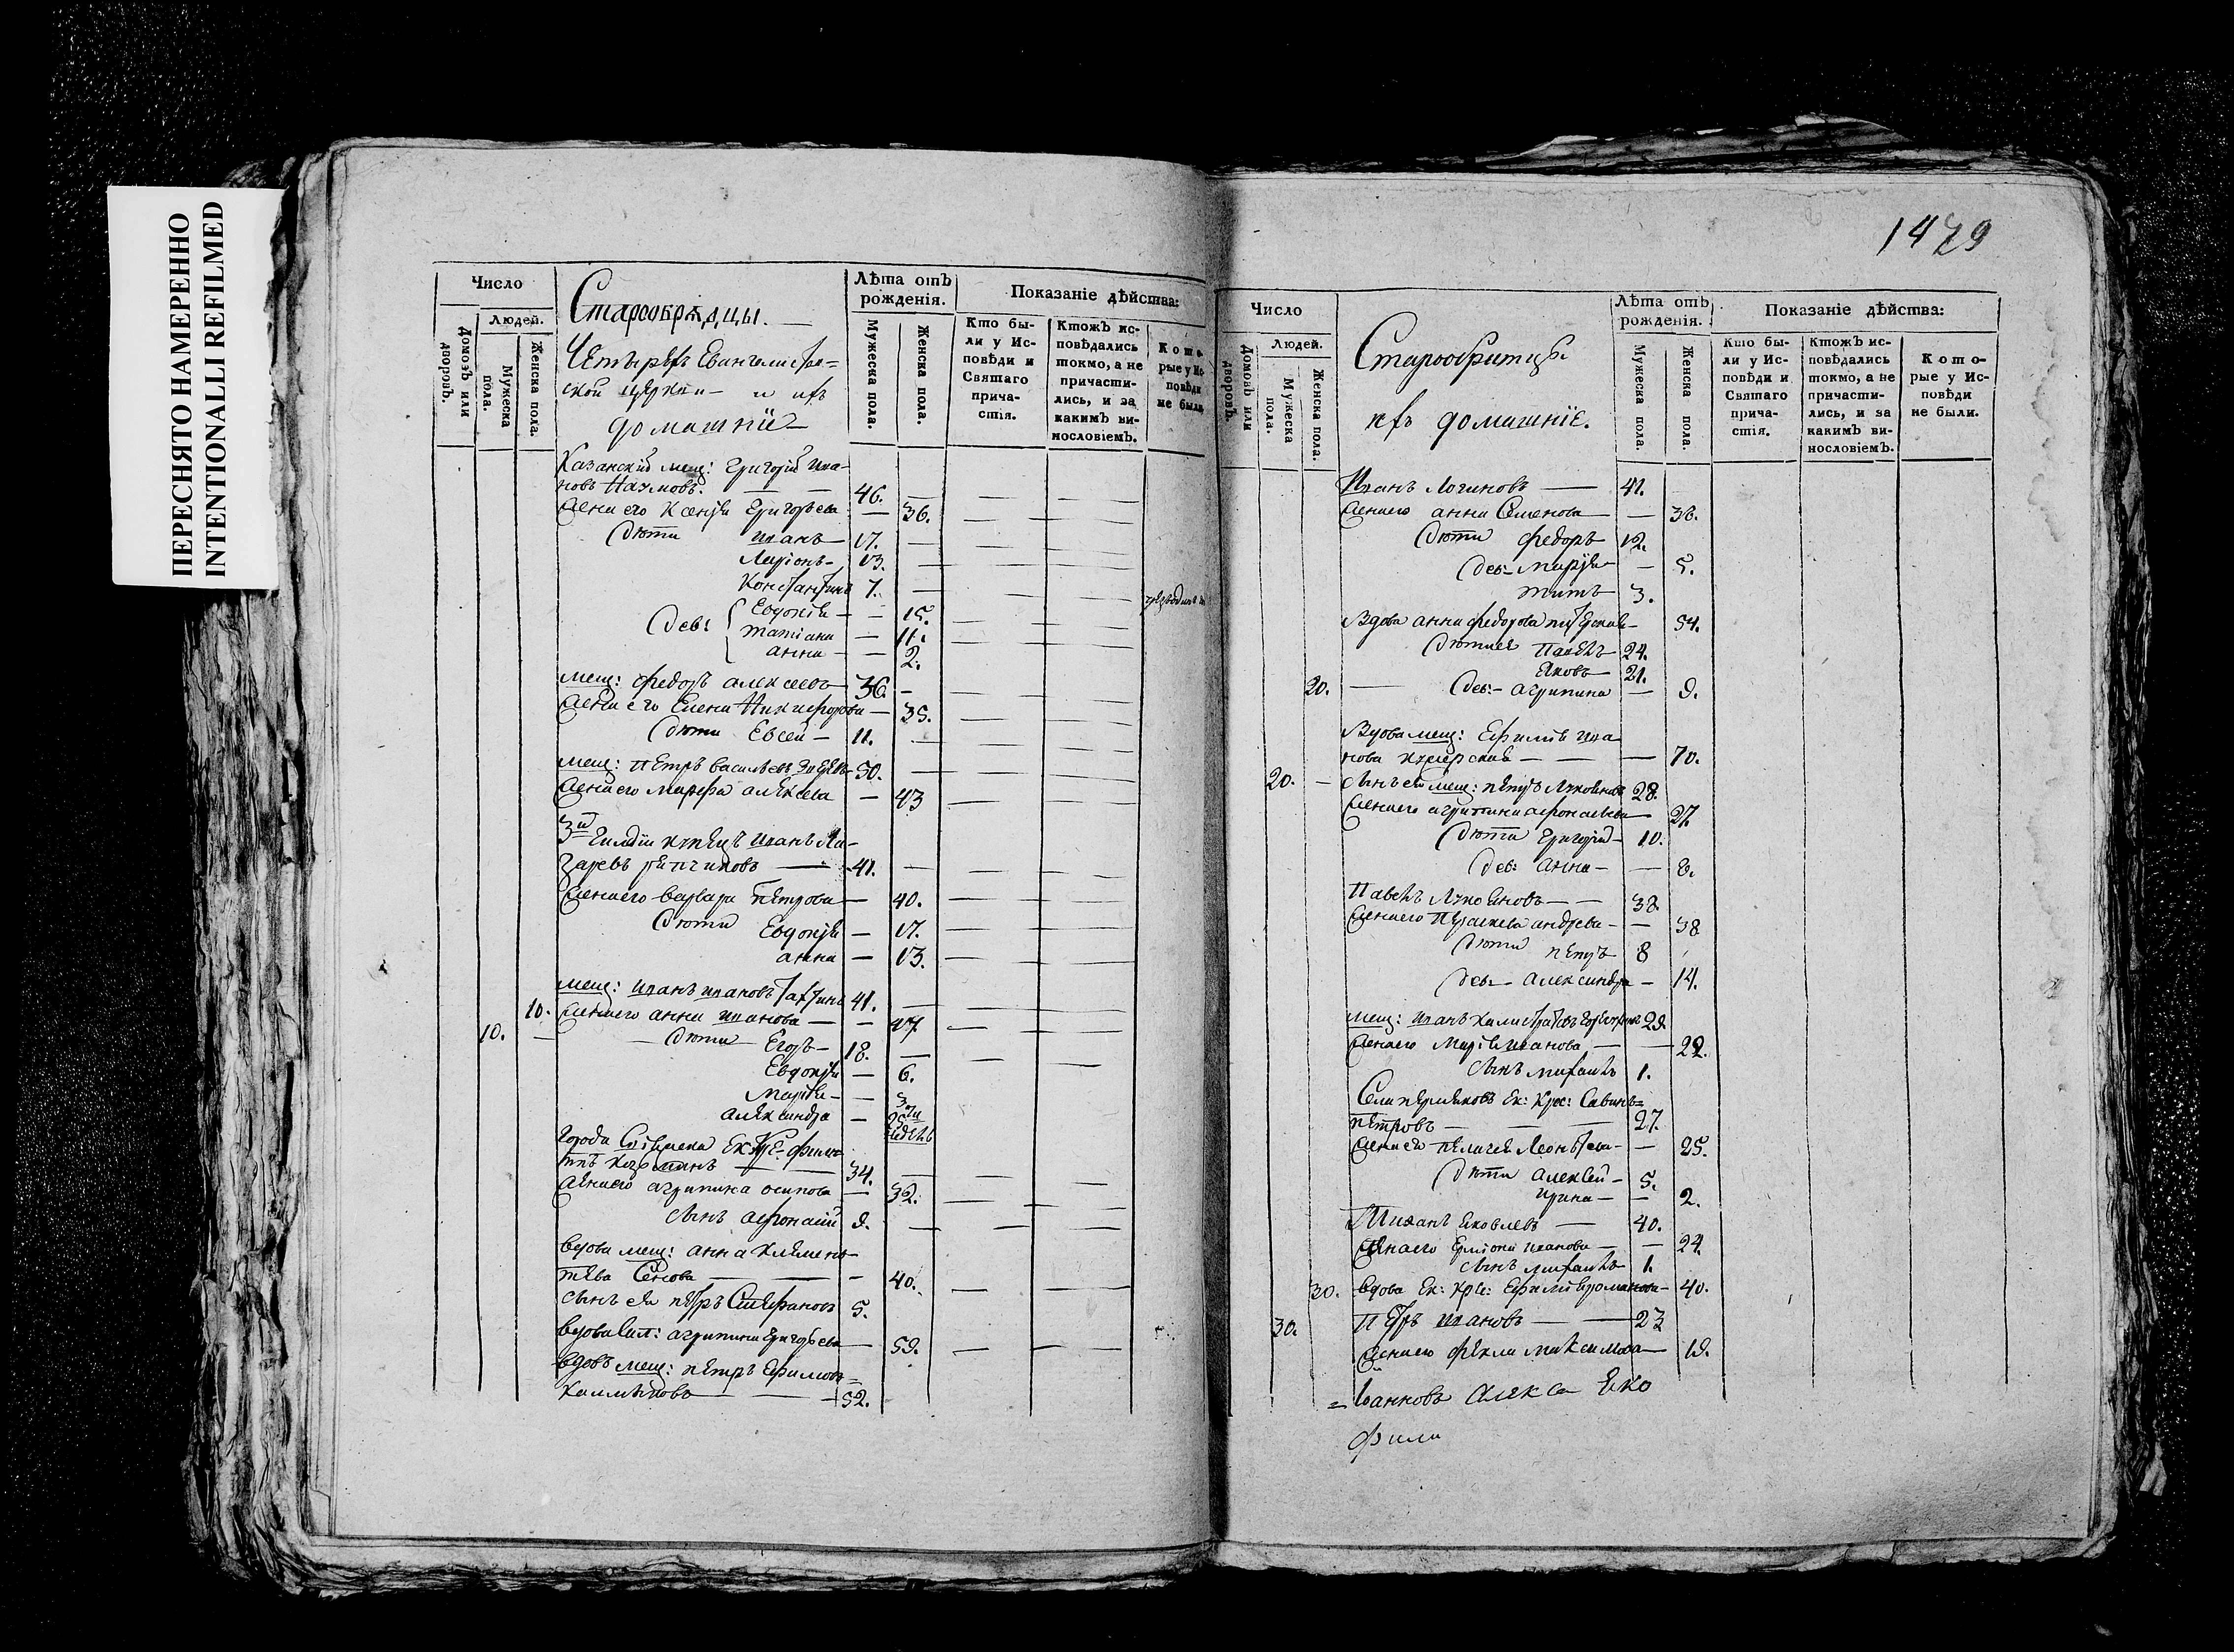 ПЕРЕСНЯТО НАМЕРЕННО
INTENTIONALLI REFILMED
Число
Людей.
Домовъ или дворовъ.
Мужеска пола.
Женска пола.
Старообрядцы.
Четырехъ Евангелистов=
ской церкви и ихъ
домашнїе
Лѣта отъ рожденія.
Мужеска пола.
Женска пола.
Показаніе дѣйства:
Кто бы-
ли у Ис-
повѣди и
Святаго
прича-
стія.
Ктожъ ис-
повѣдались
токмо, а не
причасти-
лись, и за
какимъ ви-
нословіемъ.
Кото-
рые у Ис-
повѣди
не были.
Казанский мещ: Григорий Ива-
новъ 46.
Жена его Ксенїя Григорьева 36.
Дѣти Иванъ 17.
Ларіонъ 13.
Константинъ 7.
Дев: Евдокїя 15.
татіана 11.
анна 2.
мещ: федоръ алексеевъ 36.
Жена его Елена Никифорова 35.
Дѣти Евсей 11.
мещ: Петръ васильевъ 50.
Жена его Марфа алексеева 43
3й Гилдїи купецъ Иванъ Ла-
заревъ 41.
Жена его варвара Петрова 40.
Дѣти Евдокїя 17.
анна 13.
мещ: Иванъ Ивановъ 41.
10. Жена его анна Иванова 47
10. Дѣти Егоръ 18.
Евдокїя 6.
Марїя 3.
александра
недель
города 34.
Жена его агрипина осипова 32.
сынъ афонасий 9.
вдова мещ: анна Клемень-
тьева 40.
сынъ ея петръ Стефановъ 5.
вдова агрипина Григорьева 59.
вдовъ мещ: петръ Ефимовъ
Калмыковъ 52.
1479
Число
Людей.
Домовъ или дворовъ.
Мужеска пола.
Женска пола.
Старообритцы
ихъ домашнїе.
Лѣта отъ рожденія.
Мужеска пола.
Женска пола.
Показаніе дѣйства:
Кто бы-
ли у Ис-
повѣди и
Святаго
прича-
стія.
Ктожъ ис-
повѣдались
токмо, а не
причасти-
лись, и за
какимъ ви-
нословіемъ.
Кото-
рые у Ис-
повѣди
не были.
Иванъ Логиновъ 41.
Жена его анна Семенова 38.
Дѣти федоръ 12.
Дев: Марїя 5.
титъ 3.
Вдова анна федорова 54.
Дѣти ея Павелъ 24.
Яковъ 21.
20. Дев: агрипина 9.
Вдова мещ: Ефимїя Ива
нова 70.
20. сынъ ея мещ: петръ 28.
Жена его агрипина афонасьева 27.
Дѣти Григорий 10.
Дев: Анна 8.
Павелъ 38.
Жена его Праскева андреева 38
Дѣти петръ 8
Дев: александра 14.
мещ: Иванъ 29.
Жена его Марїя Иванова 22.
сынъ михаилъ 1.
Ек: Крес: Савинъ=
петровъ 27.
Жена его пелагея Леонтьева 25.
Дѣти алексей 5.
Ирина 2.
Яковлевъ 40.
Жена его Иванова 24.
сынъ михаилъ 1.
30. вдова Ек: Кре: Ефимїя романова 40.
30. Петръ Ивановъ 23
Жена его фекла максимова 19.
алекса Еко
фили